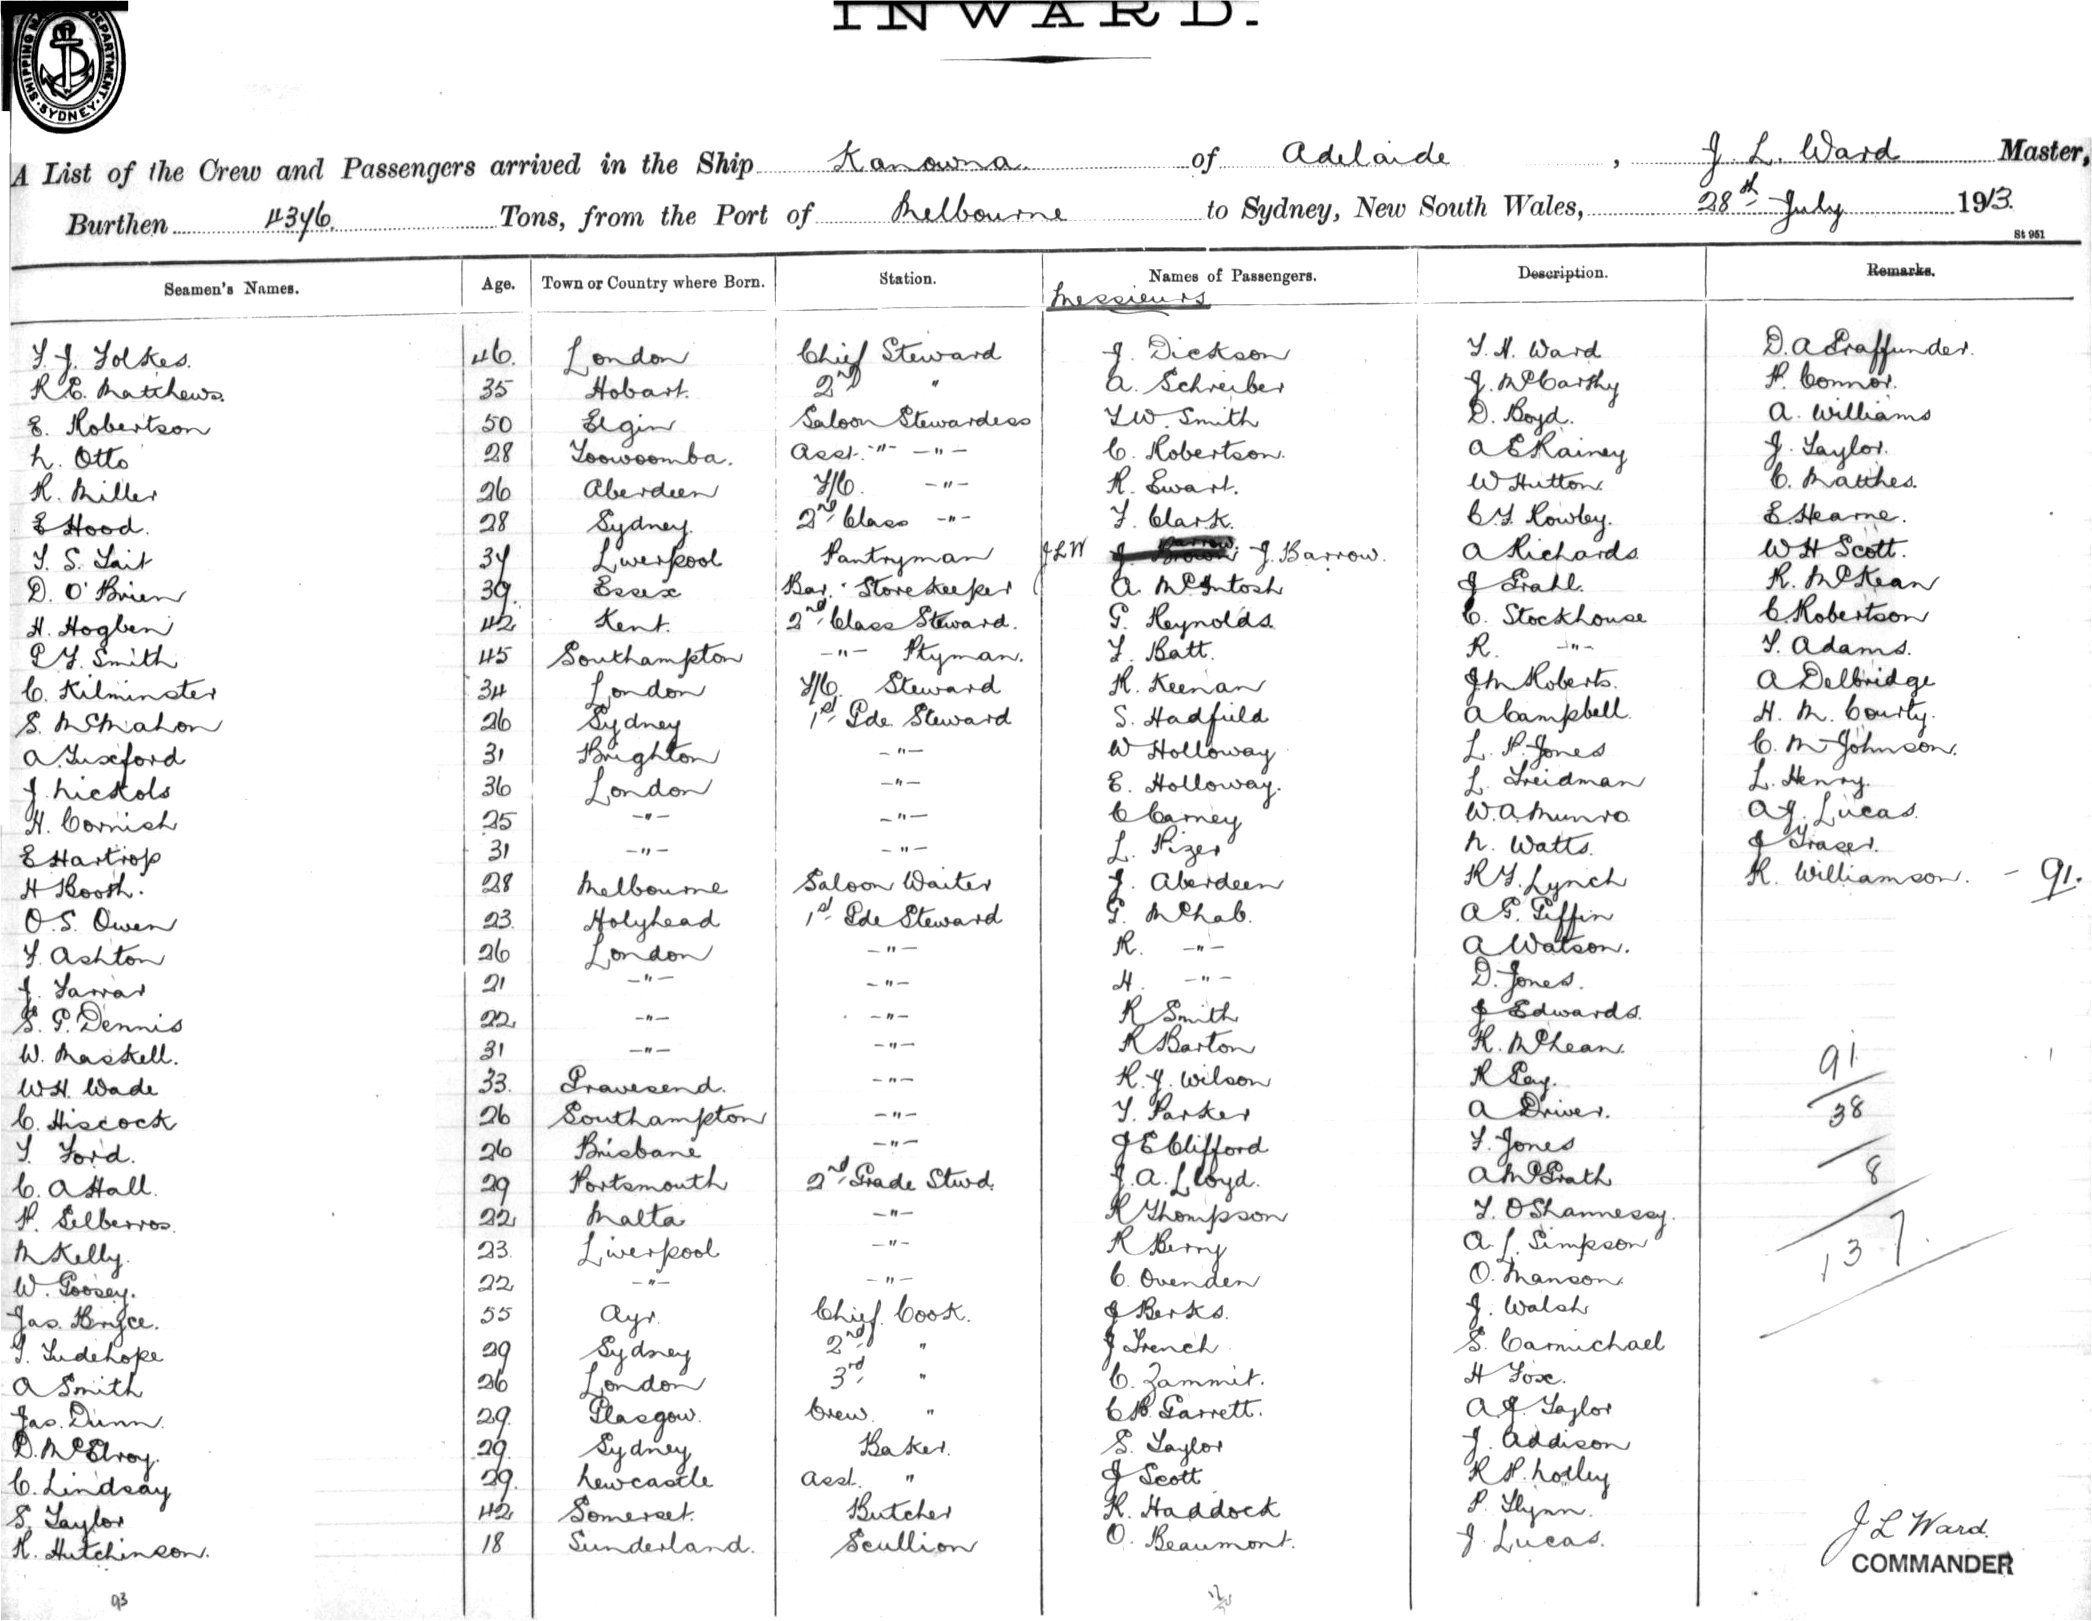 INWARD.
SHIPPING DEPARTMENT SYDNEY
A List of the Crew and Passengers arrived in the Ship Kanowna of Adelaide, J. L. Ward Master,
Burthen 4376. Tons, from the Port of Melbourne to Sydney, New South Wales, 28th July 1913.
St 951
Seamen's Names. Age. Town or Country where Born. Station. Names of Passengers. Description. Remarks.
Messieurs
F. J. Folkes. 46. London Chief Steward J. Dickson F. H. Ward D. A Graffunder.
R E. Matthews. 35 Hobart. 2nd " A. Schreiber J. McCarthy P. Connor.
E. Robertson 50 Elgin Saloon Stewardess F W. Smith D. Boyd. A. Williams
N. Otto 28 Toowoomba. Asst. -"- -"- C. Robertson. A E Rainey J. Taylor.
R. Miller 26 Aberdeen F/C. -"- R. Ewart. W Hutton. C. Matthes.
E Hood. 28 Sydney. 2nd Class -"- F. Clark. C F Rowley. E. Hearne.
F. S. Tait 37 Liverpool Pantryman JLW J. Brown Barrow J. Barrow. A Richards W H Scott.
D. O'Brien 39. Essex Bar. Storekeeper A. McIntosh J Grahl. R. McKean
H. Hogben 42 Kent. 2nd Class Steward. G. Reynolds. C. Stockhouse C. Robertson
P F. Smith 45 Southampton -"- Ptyman. F. Batt. R. -"- F. Adams.
C. Kilminster 34 London F/C. Steward R. Keenan J M Roberts. A Delbridge
S. McMahon 26 Sydney 1st Gde. Steward S. Hadfield A Campbell. H. M. Courty.
A. Tuxford 31 Brighton -"- W Holloway L. P. Jones C. M Johnson.
J. Nickols 36 London -"- E. Holloway. L. Freidman L. Henry.
H. Cornish 25 -"- -"- C Carney W. A. Munro A J. Lucas.
E Hartrop 31 -"- -"- L. Pizer N. Watts. J Fraser.
H Booth. 28 Melbourne Saloon Waiter J. Aberdeen R F. Lynch R. Williamson. - 91.
O. S. Owen 23. Holyhead 1st Gde Steward G. McNab. A G. Giffin
F. Ashton 26 London -"- R. -"- A Watson.
J. Farrar 21 -"- -"- H. -"- D. Jones.
S. G. Dennis 22 -"- -"- R Smith J Edwards.
W. Maskell. 31 -"- -"- R Barton R. McLean. 91
W H. Wade 33. Gravesend. -"- R. J. Wilson R Gay.
C. Hiscock 26 Southampton -"- F. Parker A Driver. 38
F. Ford. 26 Brisbane -"- J E Clifford F. Jones
C. A Hall. 29 Portsmouth 2nd Grade Stwd. J. A. Lloyd. A McGrath 8
P. Selberros. 22 Malta -"- R Thompson F. O Shannessy.
M Kelly. 23. Liverpool -"- R Berry A. L. Simpson 137.
W. Goosey. 22 -"- -"- C. Ovenden O. Manson.
Jas. Bryce. 55 Ayr. Chief Cook. J Berks. J. Walsh
T. Tudehope 29 Sydney 2nd " J French S. Carmichael
A Smith 26 London 3rd " C. Zammit. H Fox.
Jas. Dunn. 29. Glasgow. Crew. " C H. Garrett. A J. Taylor
D. McElroy. 29. Sydney Baker. S. Taylor J. Addison
C. Lindsay 29. Newcastle Asst. " J Scott R P. Notley
S. Taylor 42 Somerset. Butcher R. Haddock P. Flynn.
R. Hutchinson. 18 Sunderland. Scullion O. Beaumont. J Lucas.
J L Ward.
COMMANDER
93